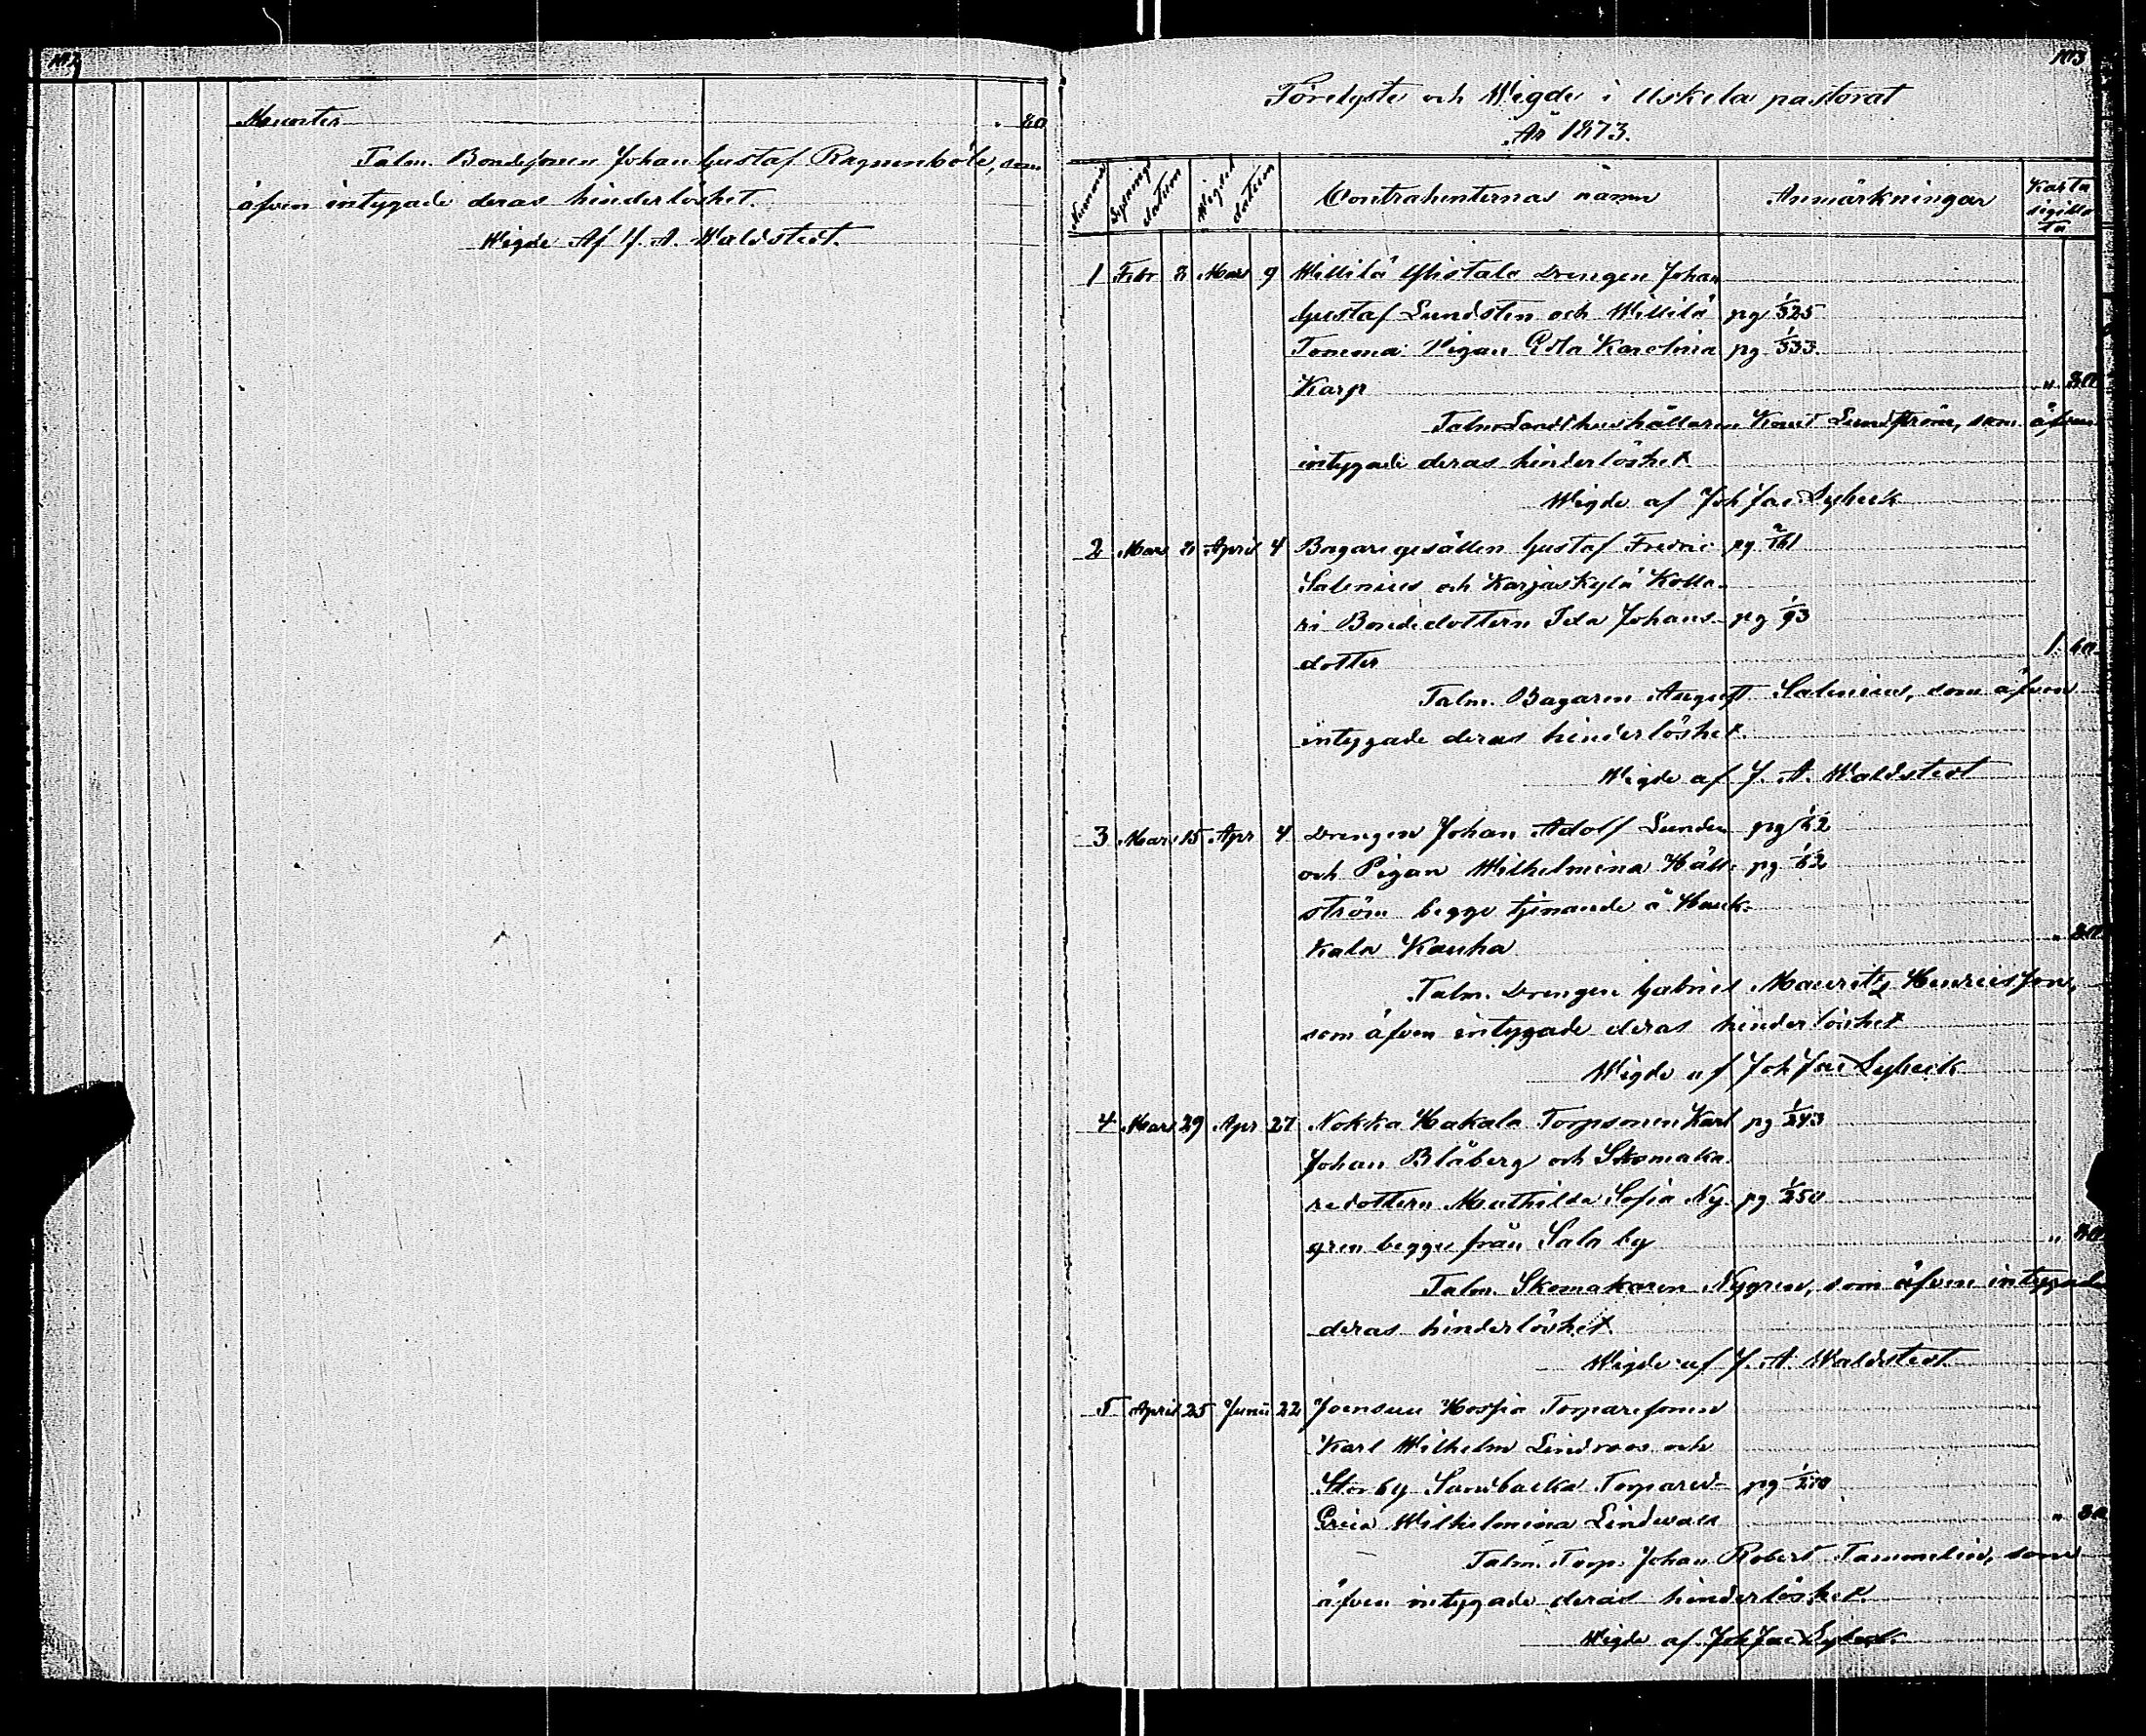 Munter . 80
Talm. Bondesonen Johan Gustaf Ragnenböle, som
äfven intygade deras hinderlöshet.
Wigde Af J. A. Waldstedt.
103
Förelyste och Wigde i Uskela pastorat
År 1873.
Nummer Lysnings datum Wigsel datum Contrahenternas namn Anmärkningar Karta sigilla ta
1 Febr 8 Mars 9 Willilä Yhistalo Drengen Johan
Gustaf Lundsten och Willilä pg 1/325
Tomma Pigan Edla Karolina pg 1/333.
Karp " 80
Talm. Landthushållaren Knut Lundström, som äfven
intygade deras hinderlöshet
Wigde af Joh Jac Lybeck
2 Mars 8 April 4 Bagaregesällen Gustaf Fredric pg 2/761
Salenius och Karjaskylä Kolla-
ri Bondedottern Ida Johans- pg 1/93
dotter 1. 60
Talm. Bagaren August Salenius, som äfven
intygade deras hinderlöshet.
Wigde af J. A. Waldstedt
3 Mars 15 Apr 4 Drengen Johan Adolf Lunden pg 1/62
och Pigan Wilhelmina Häll- pg 1/62
ström begge tjenande å Hauk-
kala Kauha " 80
Talm. Drengen Gabriel Mauritz Henricsson,
som äfven intygade deras hinderlöshet
Wigde af Joh Jac Lybeck
4 Mars 29 Apr 27 Nokka Hakala Torpsonen Karl pg 1/243
Johan Blåberg och Skomaka-
redottern Mathilda Sofia Ny- pg 1/250
gren begge från Salo by " 80
Talm. Skomakaren Nygren, som äfven intygade
deras hinderlöshet.
Wigde af J. A. Waldstedt
5 April 25 Junii 22 Joensuu Hossia Torparesonen
Karl Wilhelm Lindroos och
Storby Sandbacka Torpared- pg
Erica Wilhelmina Lindwall " 80
Talm. Torp. Johan Robert Tammelin, som
äfven intygade deras hinderlöshet.
Wigde af Joh Jac Lybeck